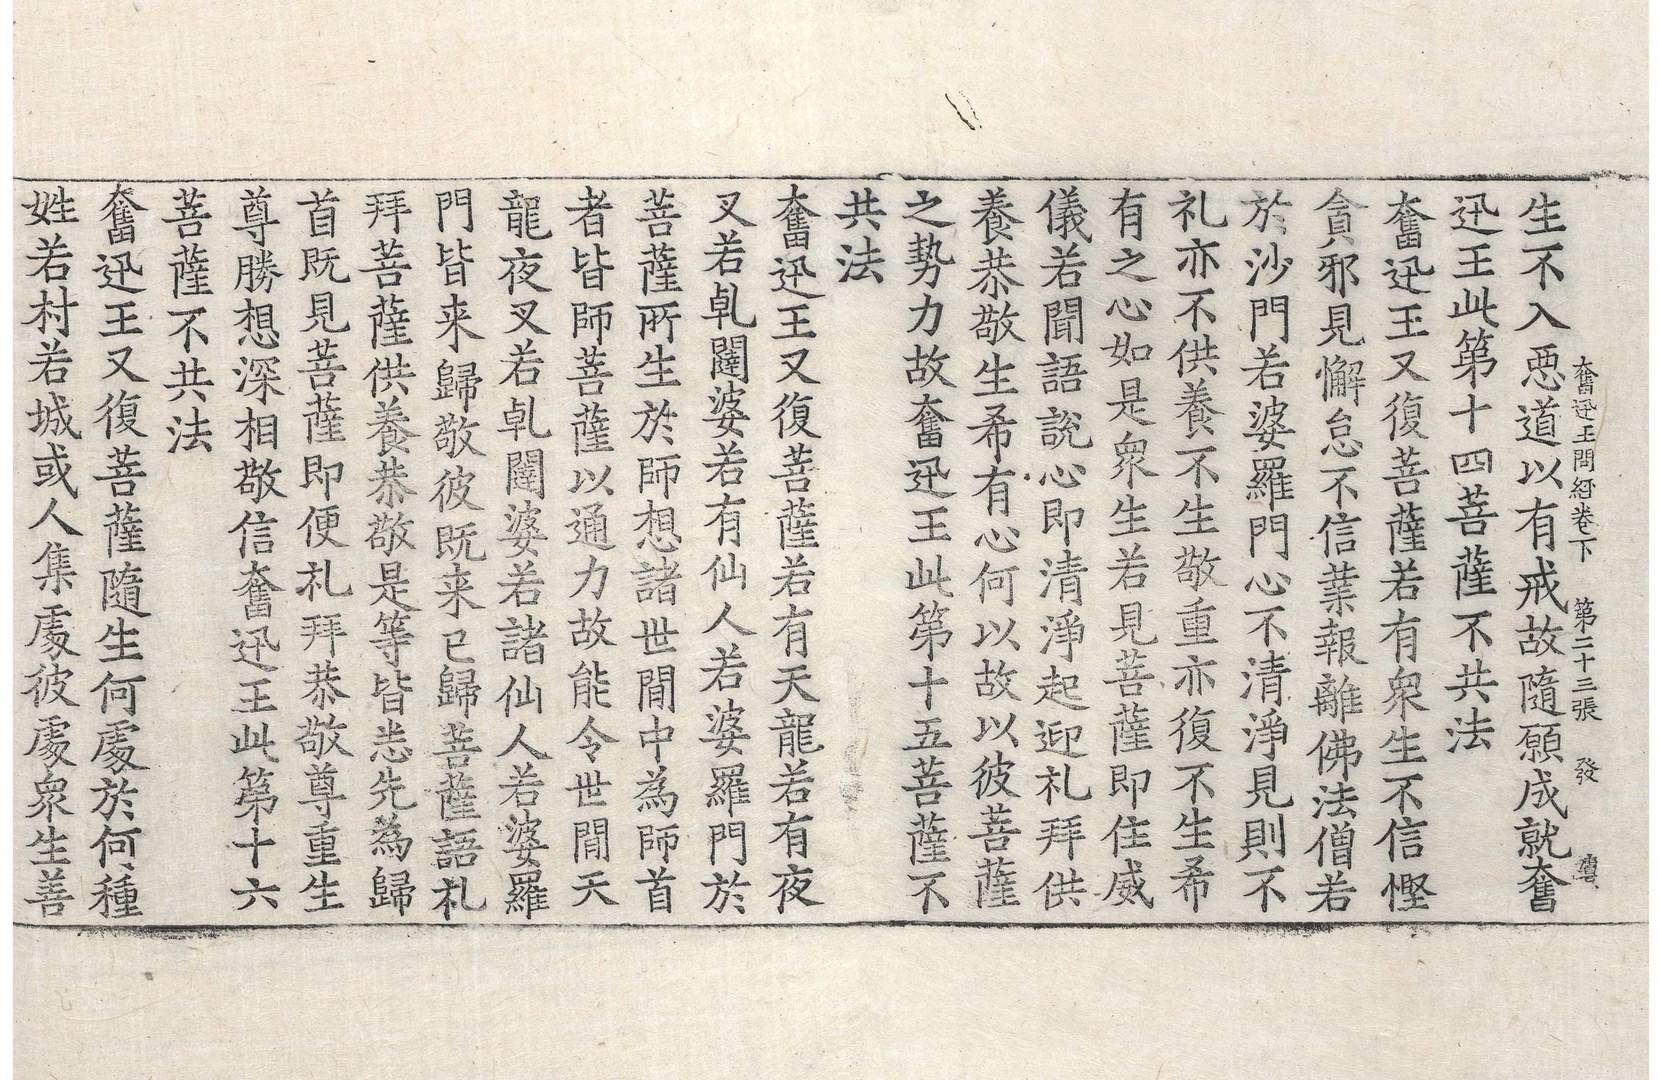 奮迅王問經卷下　第二十三張　發
生不入惡道以有戒故隨願成就奮
迅王此第十四菩薩不共法
奮迅王又復菩薩若有衆生不信慳
貪邪見懈怠不信業報離佛法僧若
於沙門若婆羅門心不清淨見則不
礼亦不供養不生敬重亦復不生希
有之心如是衆生若見菩薩即住威
儀若聞語說心即清淨起迎礼拜供
養恭敬生希有心何以故以彼菩薩
之勢力故奮迅王此第十五菩薩不
共法
奮迅王又復菩薩若有天龍若有夜
叉若乹闥婆若有仙人若婆羅門於
菩薩所生於師想諸世間中為師首
者皆師菩薩以通力故能令世間天
龍夜叉若乹闥婆若諸仙人若婆羅
門皆来歸敬彼既来已歸菩薩語礼
拜菩薩供養恭敬是等皆悉先為歸
首既見菩薩即便礼拜恭敬尊重生
尊勝想深相敬信奮迅王此第十六
菩薩不共法
奮迅王又復菩薩隨生何處於何種
姓若村若城或人集處彼處衆生善